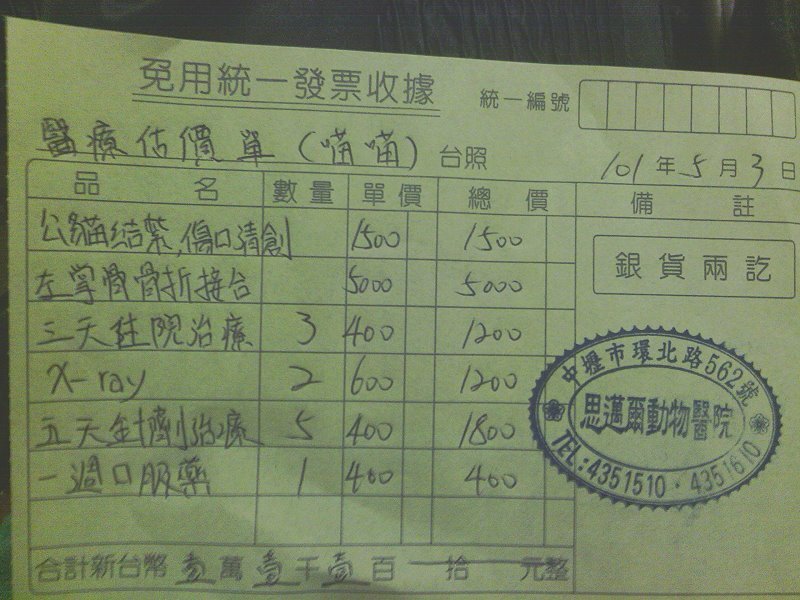 免用統一發票收據
統一編號
醫療估價單 (喵喵) 台照
101年5月3日
品名 數量 單價 總價 備註
公貓結紮,傷口清創 1500 1500
左掌骨骨折接合 5000 5000
三天住院治療 3 400 1200
X-ray 2 600 1200
五天針劑治療 5 400 1800
一週口服藥 1 400 400
合計新台幣壹萬壹千壹百拾元整
銀貨兩訖
中壢市環北路562號
思邁爾動物醫院
TEL:4351510·4351610